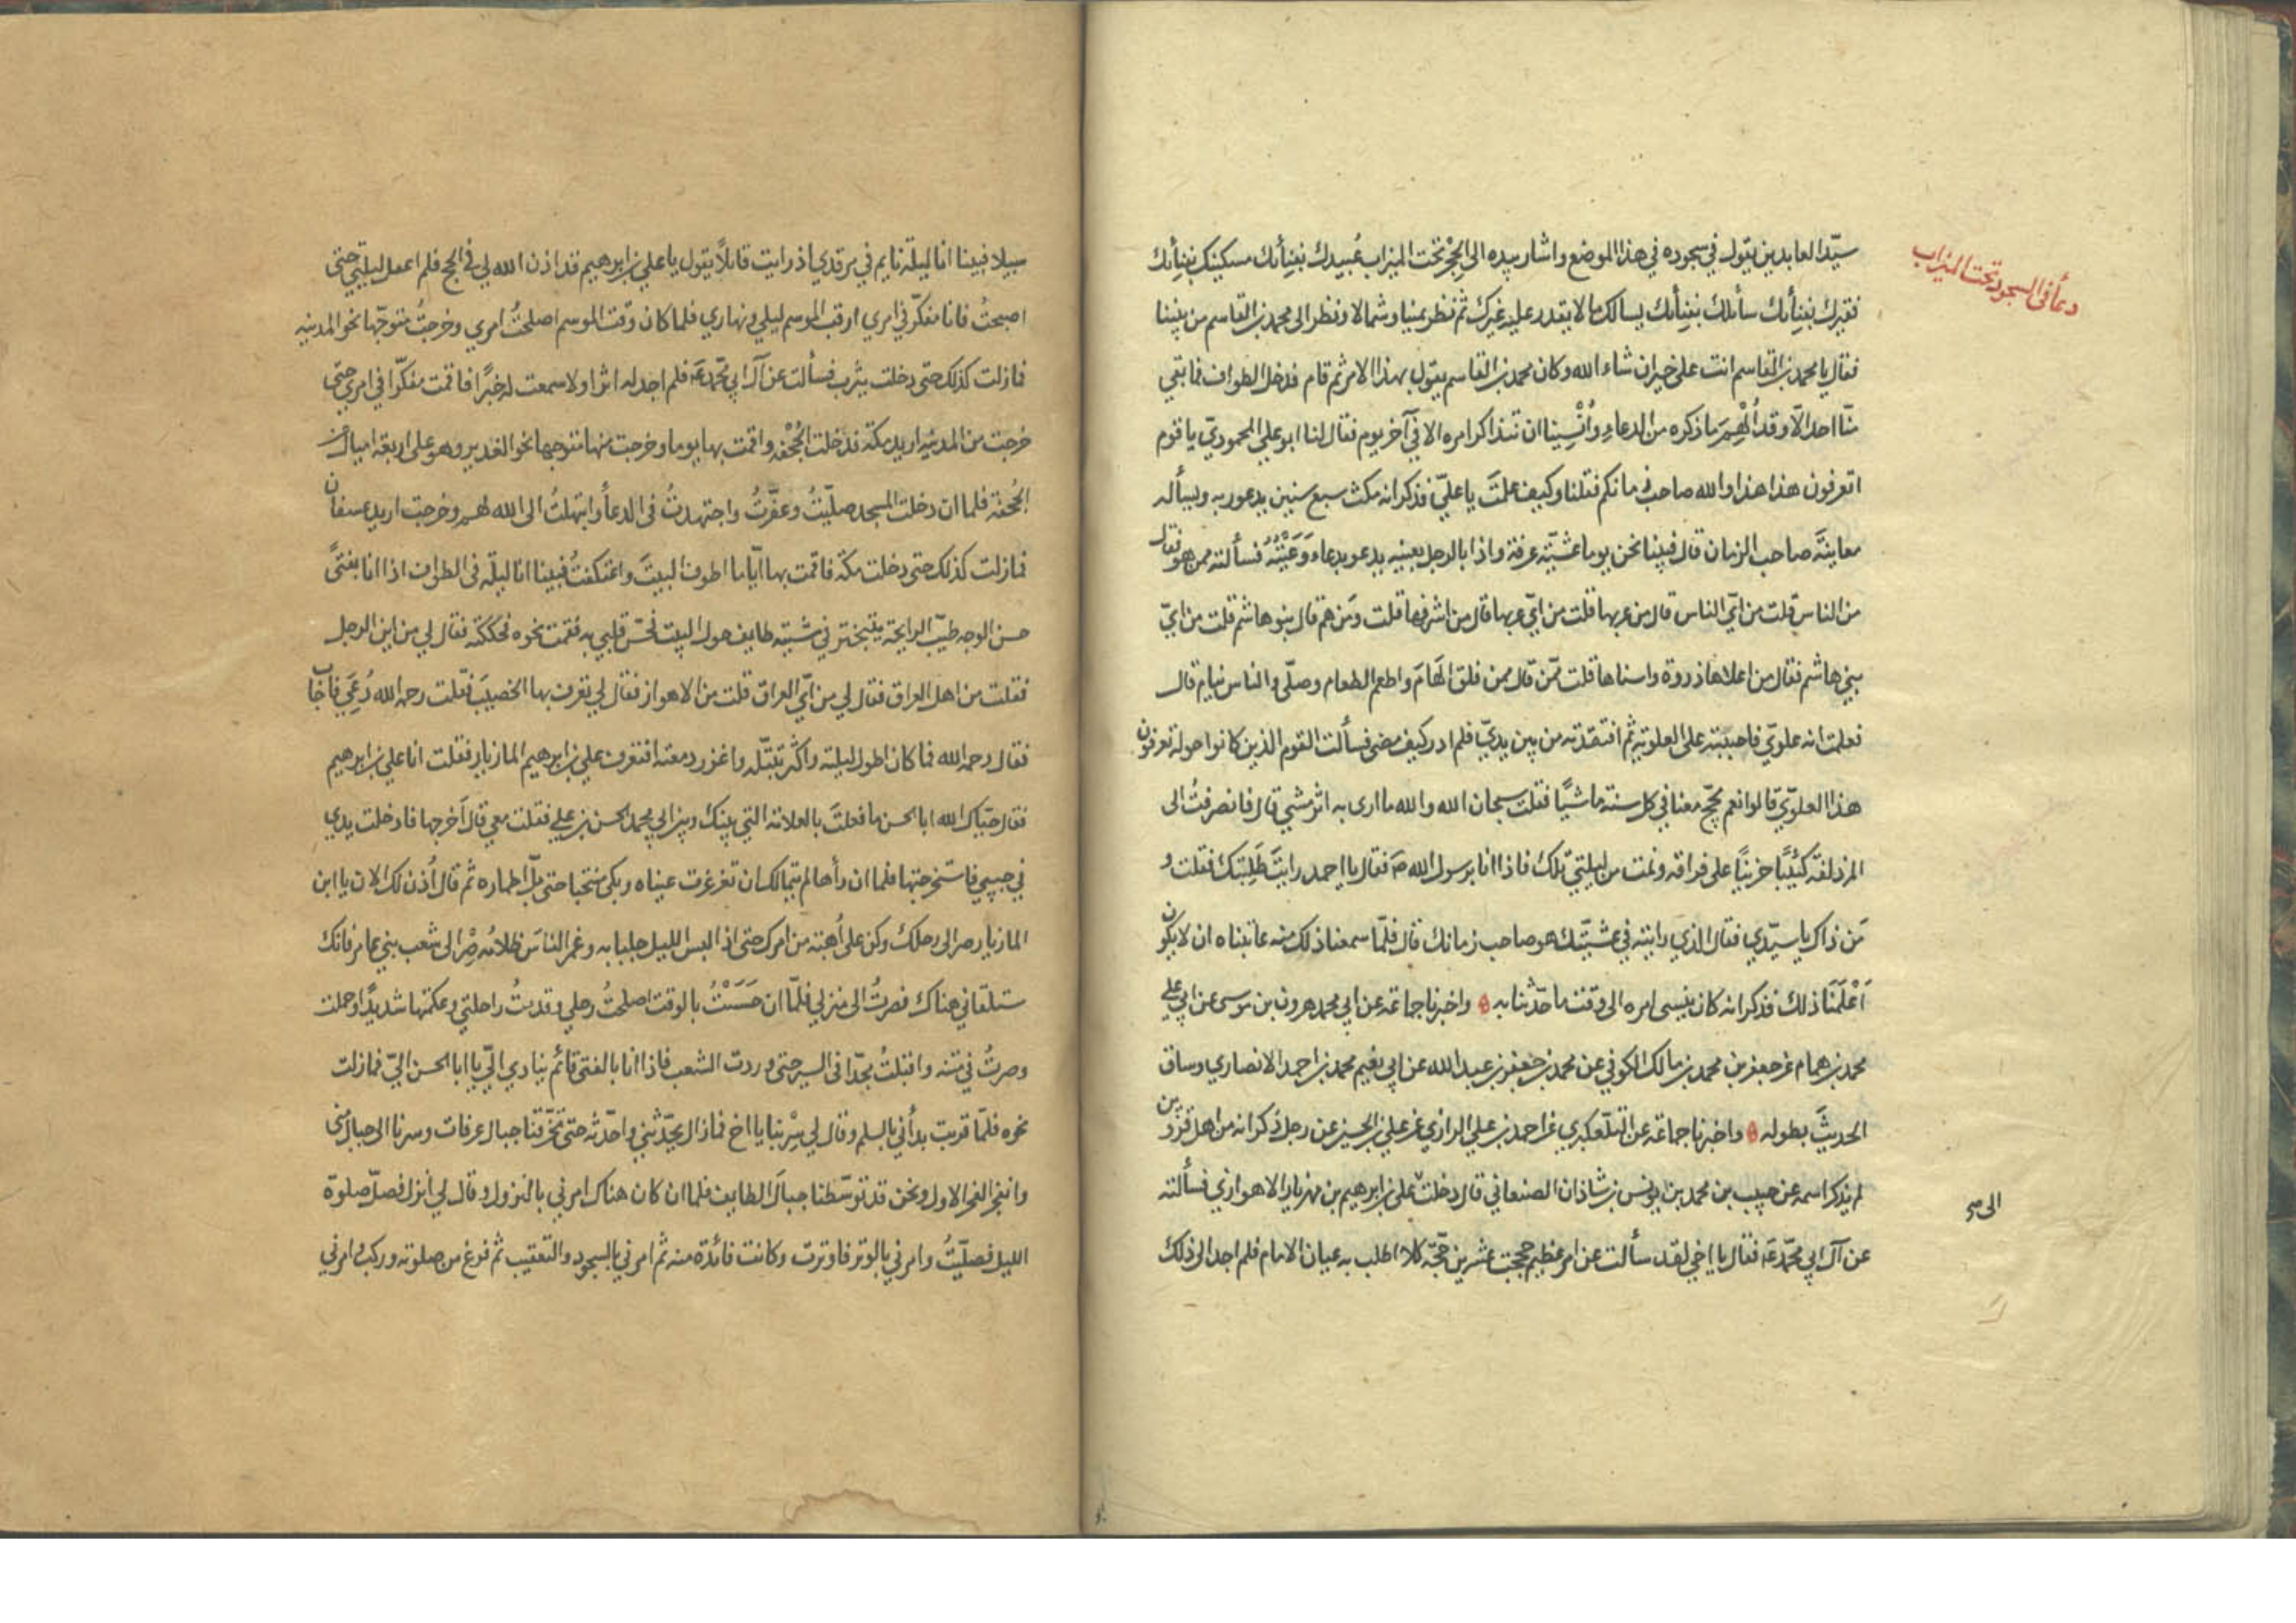 دعاء في السجود تحت الميزاب
سيّد العابدين يقول في سجوده في هذا الموضع واشار بيده الى الحِجْر تحت الميزاب عُبيدك بفنائك مسكينك بفنائك
فقيرك بفنائك سائلك بفنائك يسالك ما لا يقدر عليه غيرك ثم نظر يمينا وشمالا ونظر الى محمد بن القاسم من بيننا
فقال يا محمد بن القاسم انت على خير ان شاء الله وكان محمد بن القاسم يقول بهذا الامر ثم قام فدخل الطواف فما بقي
منّا احد الّا وقد اُلْهِمَ ما ذكره من الدعاء واُنْسِينا ان نتذاكر امره الا في آخر يوم فقال لنا ابو علي المحموديّ يا قوم
اتعرفون هذا هذا والله صاحب زمانكم فقلنا وكيف علمتَ يا عليّ فذكر انه مكث سبع سنين يدعو ربه ويسأله
معاينةَ صاحب الزمان قال فبينا نحن يوما عشيّة عرفة واذا بالرجل بعينه يدعو بدعاء وَعَيْتُهُ فسألته ممن هو فقال
من الناس قلت من ايّ الناس قال من عربها قلت من ايّ عربها قال من اشرفها قلت ومَن هم قال بنو هاشم قلت من ايّ
بني هاشم فقال من اعلاها ذروة واسناها قلت ممّن قال ممن فلق الهَامَ واطعم الطعام وصلّى والناس نيام قال
فعلمت انه علويّ فاحببته على العلوية ثم افتقدته من بين يديّ فلم ادر كيف مضى فسألت القوم الذين كانوا حوله تعرفون
هذا العلويّ قالوا نعم يحجّ معنا في كل سنة ماشيًا فقلت سبحان الله والله ما ارى به اثر مشي قال فانصرفتُ الى
المزدلفة كئيبًا حزينًا على فراقه ونمت من ليلتي تلك فاذا انا برسول الله ص فقال يا احمد رايتَ طَلِبتك فقلت و
مَن ذاك يا سيّدي فقال الذي رايته في عشيّتك هو صاحب زمانك قال فلمّا سمعنا ذلك منه عاتبناه ان لا يكون
اَعْلَمَنا ذلك فذكر انه كان ينسى امره الى وقت ما حدّثنا به واخبرنا جماعة عن ابي محمد هرون بن موسى عن ابي علي
محمد بن همام عن جعفر بن محمد بن مالك الكوفي عن محمد بن جعفر بن عبد الله عن ابي نعيم محمد بن احمد الانصاري وساق
الحديثَ بطوله واخبرنا جماعة عن التلّعكبري عن احمد بن علي الرازي عن علي بن الحسين عن رجل ذكر انه من اهل قزوين
لم يذكر اسمه عن حبيب بن محمد بن يونس بن شاذان الصنعاني قال دخلت على بن ابرهيم بن مهزيار الاهوازي فسألته
الى
عن آل ابي محمّد ع فقال يا اخي لقد سألت عن امر عظيم حججت عشرين حجّة كلا اطلب به عيان الامام فلم اجد الى ذلك
سبيلا فبينا انا ليلة نايم في مرقدي اذ رايت قائلاً يقول يا علي بن ابرهيم قد اذن الله لي في الحج فلم اعقل ليلتي حتى
اصبحتُ فانا مفكّر في امري ارقب الموسم ليلي ونهاري فلما كان وقت الموسم اصلحتُ امري وخرجتُ متوجّها نحو المدينه
فما زلت كذلك حتى دخلت يثرب فسألت عن آل ابي محمّد ع فلم اجد له اثرا ولا سمعت له خبرًا فاقمت مفكّرا في امري حتّى
خرجت من المدينه اريد مكة فدخلت الجُحْفه واقمت بها يوما وخرجت منها متوجها نحو الغدير وهو على اربعة اميال من
الجُحفة فلما ان دخلت المسجد صلّيتُ وعفّرتُ واجتهدتُ في الدعا وابتهلتُ الى الله لهم وخرجت اريد عسفان
فما زلت كذلك حتى دخلت مكة فاقمت بها ايّاما اطوف البيتَ واعتكفتُ فبينا انا ليلة في الطواف اذا انا بفتًى
حسن الوجه طيّب الرايحة يتبختر في مشيته طايف حول البيت فحسّ قلبي به فقمت نحوه فحككته فقال لي من اين الرجل
فقلت من اهل العراق فقال لي من ايّ العراق قلت من الاهواز فقال لي تعرف بها الخصيبَ فقلت رحمه الله دُعِيَ فاجاب
فقال رحمه الله فما كان اطول ليلته واكثر تبتّله واغزر دمعته افتعرف علي بن ابرهيم المازيار فقلت انا علي بن ابرهيم
فقال حيّاك الله ابا الحسن ما فعلتَ بالعلامة التي بينك وبين ابي محمد الحسن بن علي فقلت معي قال اَخرجها فادخلت يدي
في جيبي فاستخرجتها فلما ان رأها لم يتمالك ان تغرغرت عيناه وبكى منتحبا حتى بلّ اطماره ثم قال اُذن لك الان يا ابن
المازيار صر الى رحلك وكن على اُهبة من امرك حتى اذا لبس الليل جلبابه وغمر الناسَ ظلامُه صِرْ الى شعب بني عامر فانك
ستلقاني هناك فصرتُ الى منزلي فلمّا ان حَسَسْتُ بالوقت اصلحتُ رحلي وقدمتُ راحلتي وعكمتها شديدًا وحملت
وصرتُ في متنه واقبلتُ مجدّا في السير حتى وردت الشعب فاذا انا بالفتى قائم ينادي اليّ يا ابا الحسن اليّ فما زلت
نحوه فلمّا قربت بدأني بالسلم وقال لي سِرْ بنا يا اخ فما زال يحدّثني واحدّثه حتى تخرّقنا جبال عرفات وسرنا الى جبال منى
وانفجر الفجر الاول ونحن قد توسّطنا جبالَ الطايف فلما ان كان هناك امرني بالنزول وقال لي انزل فصلّ صلوة
الليل فصلّيتُ وامرني بالوتر فاوترت وكانت فائدة منه ثم امرني بالسجود والتعقيب ثم فرغ من صلوته وركب وامرني